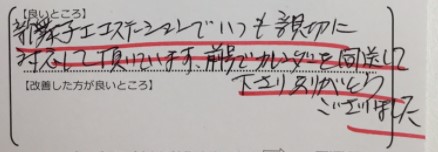 【良いところ】
新舞子エコステーションでいつも親切に
対応して頂いています、前号でカレンダーを同送して
【改善した方が良いところ】
下さりありがとう
ございました